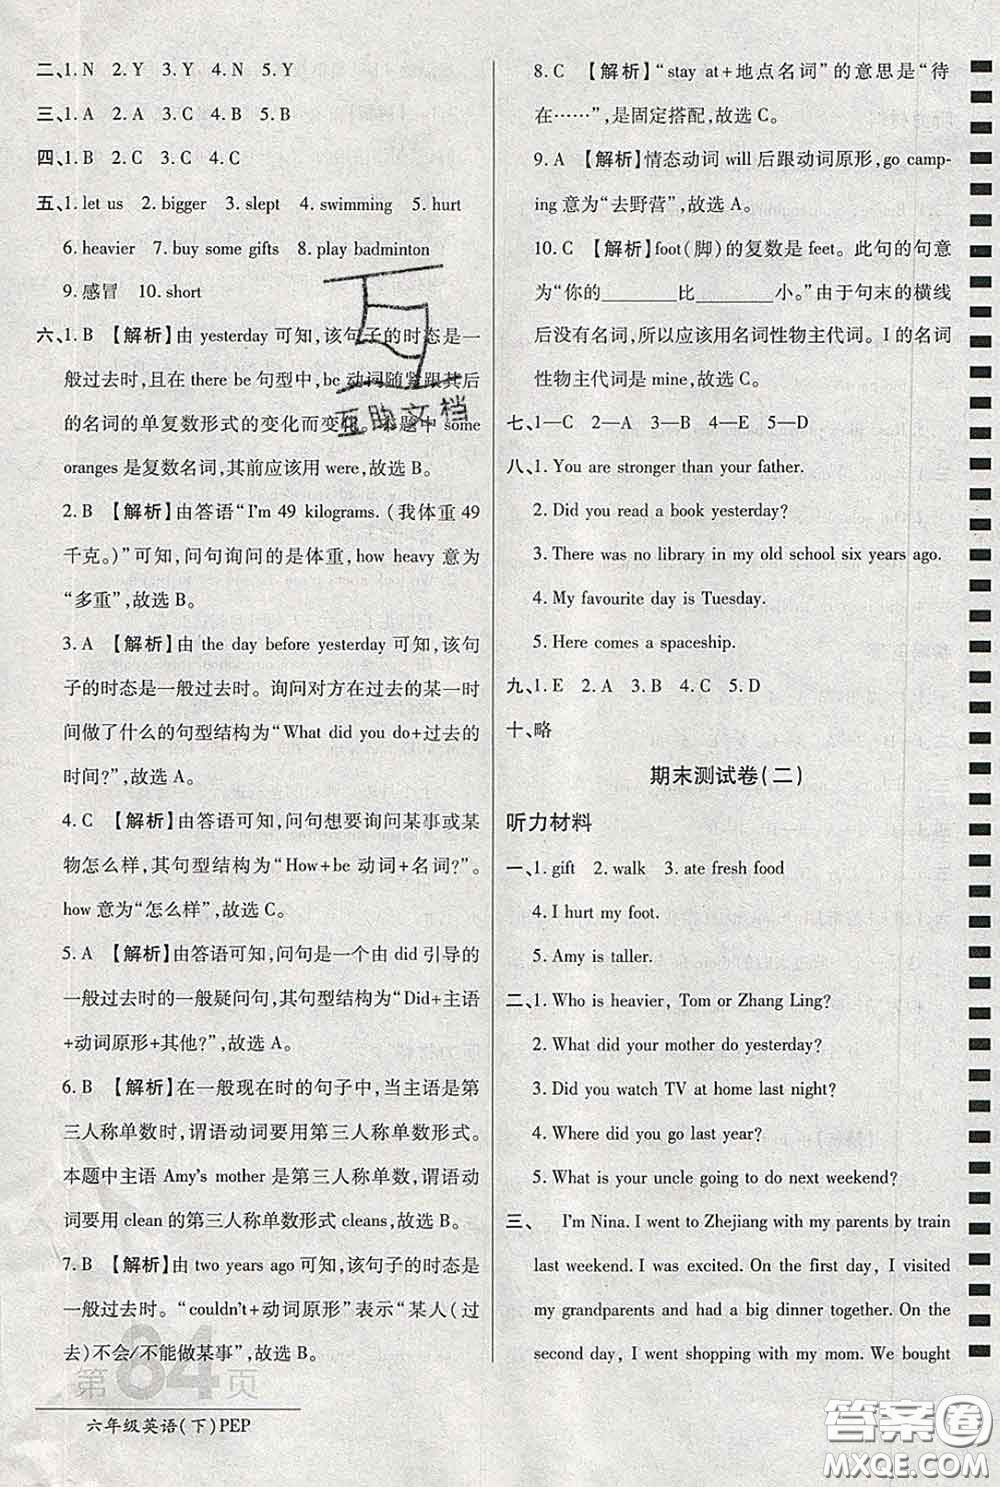 二、1. N 2. Y 3. Y 4. N 5. Y
三、1. A 2. A 3. C 4. B 5. B
四、1. B 2. C 3. C 4. C
五、1. let us 2. bigger 3. slept 4. swimming 5. hurt
6. heavier 7. buy some gifts 8. play badminton
9. 感冒 10. short
六、1. B 【解析】由 yesterday 可知,该句子的时态是一
般过去时,且在 there be 句型中,be 动词随紧跟其后
的名词的单复数形式的变化而变化。本题中 some
oranges 是复数名词,其前应该用 were,故选 B。
2. B 【解析】由答语“I'm 49 kilograms. (我体重 49
千克。)”可知,问句询问的是体重,how heavy 意为
“多重”,故选 B。
3. A 【解析】由 the day before yesterday 可知,该句
子的时态是一般过去时。询问对方在过去的某一时
间做了什么的句型结构为“What did you do+过去的
时间?”,故选 A。
4. C 【解析】由答语可知,问句想要询问某事或某
物怎么样,其句型结构为“How+be 动词+名词?”。
how 意为“怎么样”,故选 C。
5. A 【解析】由答语可知,问句是一个由 did 引导的
一般过去时的一般疑问句,其句型结构为“Did+主语
+动词原形+其他?”,故选 A。
6. B 【解析】在一般现在时的句子中,当主语是第
三人称单数时,谓语动词要用第三人称单数形式。
本题中主语 Amy's mother 是第三人称单数,谓语动
词要用 clean 的第三人称单数形式 cleans,故选 B。
7. B 【解析】由 two years ago 可知,该句子的时态是
一般过去时。“couldn't+动词原形”表示“某人(过
去)不会/不能做某事”,故选 B。
第84页
六年级英语(下)PEP
8. C 【解析】“stay at+地点名词”的意思是“待
在……”,是固定搭配,故选 C。
9. A 【解析】情态动词 will 后跟动词原形,go camp-
ing 意为“去野营”,故选 A。
10. C 【解析】foot(脚)的复数是 feet。此句的句意
为“你的________比________小。”由于句末的横线
后没有名词,所以应该用名词性物主代词。I 的名词
性物主代词是 mine,故选 C。
七、1—C 2—A 3—B 4—E 5—D
八、1. You are stronger than your father.
2. Did you read a book yesterday?
3. There was no library in my old school six years ago.
4. My favourite day is Tuesday.
5. Here comes a spaceship.
九、1. E 2. A 3. B 4. C 5. D
十、略
期末测试卷(二)
听力材料
一、1. gift 2. walk 3. ate fresh food
4. I hurt my foot.
5. Amy is taller.
二、1. Who is heavier, Tom or Zhang Ling?
2. What did your mother do yesterday?
3. Did you watch TV at home last night?
4. Where did you go last year?
5. What is your uncle going to do next weekend?
三、 I'm Nina. I went to Zhejiang with my parents by train
last weekend. I was excited. On the first day, I visited
my grandparents and had a big dinner together. On the
second day, I went shopping with my mom. We bought
互助文档
答案圈
MXQE.COM